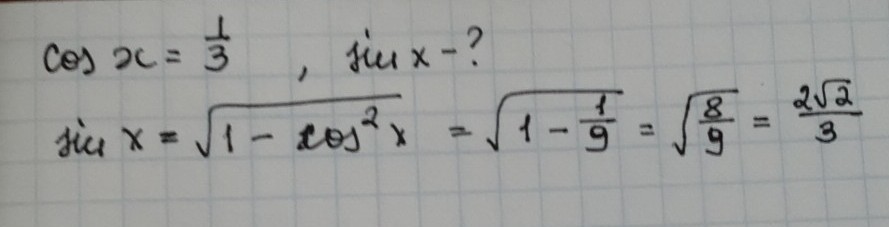 cos x = 1/3 , sin x - ?
sin x = √(1 - cos²x) = √(1 - 1/9) = √(8/9) = 2√2/3